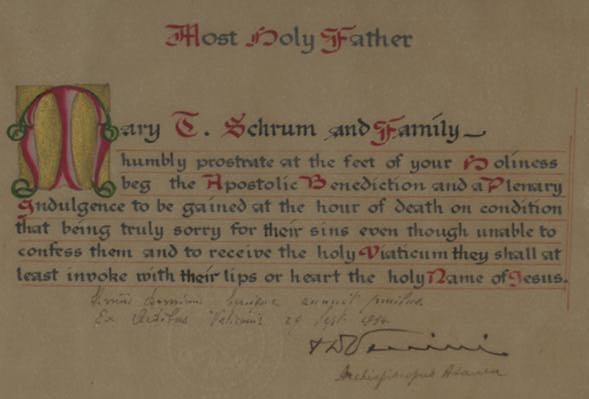 Most Holy Father
Mary T. Schrum and Family
humbly prostrate at the feet of your Holiness
beg the Apostolic Benediction and a Plenary
Indulgence to be gained at the hour of death on condition
that being truly sorry for their sins even though unable to
confess them and to receive the holy Viaticum they shall at
least invoke with their lips or heart the holy Name of Jesus.
annuit
Ex Aedibus Vaticanis
Archiepiscopus